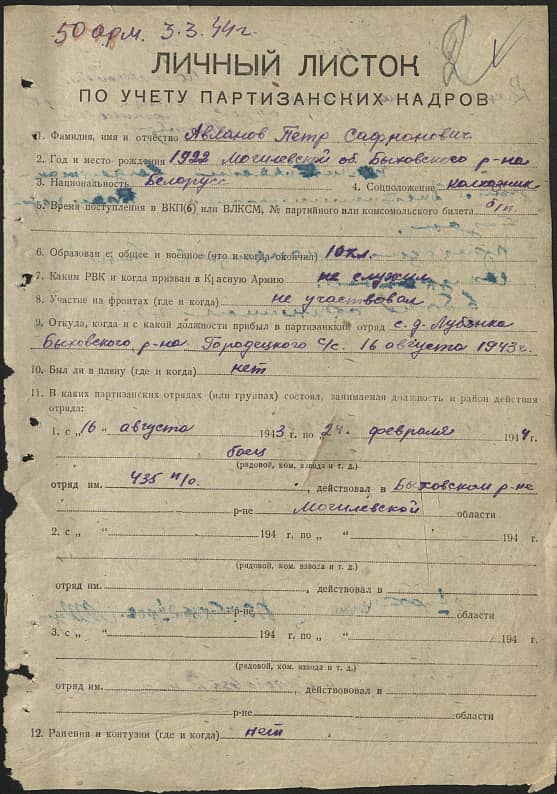 50 арм. 3.3.44г.
ЛИЧНЫЙ ЛИСТОК
ПО УЧЕТУ ПАРТИЗАНСКИХ КАДРОВ
1. Фамилия, имя и отчество Авланов Петр Сафронович
2. Год и место рождения 1922 Могилевской об. Быховского р-на
3. Национальность Белорусс 4. Соцположение колхозник
5. Время поступления в ВКП(б) или ВЛКСМ, № партийного или комсомольского билета б/п.
6. Образование: общее и военное (что и когда окончил) 10 кл.
7. Каким РВК и когда призван в Красную Армию не служил
8. Участие на фронтах (где и когда) не участвовал
9. Откуда, когда и с какой должности прибыл в партизанский отряд с. д. Лубянка
Быховского р-на Городецкого с/с. 16 августа 1943 г.
10. Был ли в плену (где и когда) нет
11. В каких партизанских отрядах (или группах) состоял, занимаемая должность и район действия
отряда:
1. с „16 “ августа 1943 г. по „24. “ февраля 1944 г.
боец
(рядовой, ком. взвода и т. д.)
отряд им. 435 п/о. , действовал в Быховском р-не
р-не Могилевской области
2. с „ “ 194 г. по „ “ 194 г.
(рядовой, ком. взвода и т. д.)
отряд им. , действовал в
р-не области
3. с „ “ 194 г. по „ “ 194 г.
(рядовой, ком. взвода и т. д.)
отряд им. , действовал в
р-не области
12. Ранения и контузии (где и когда) нет